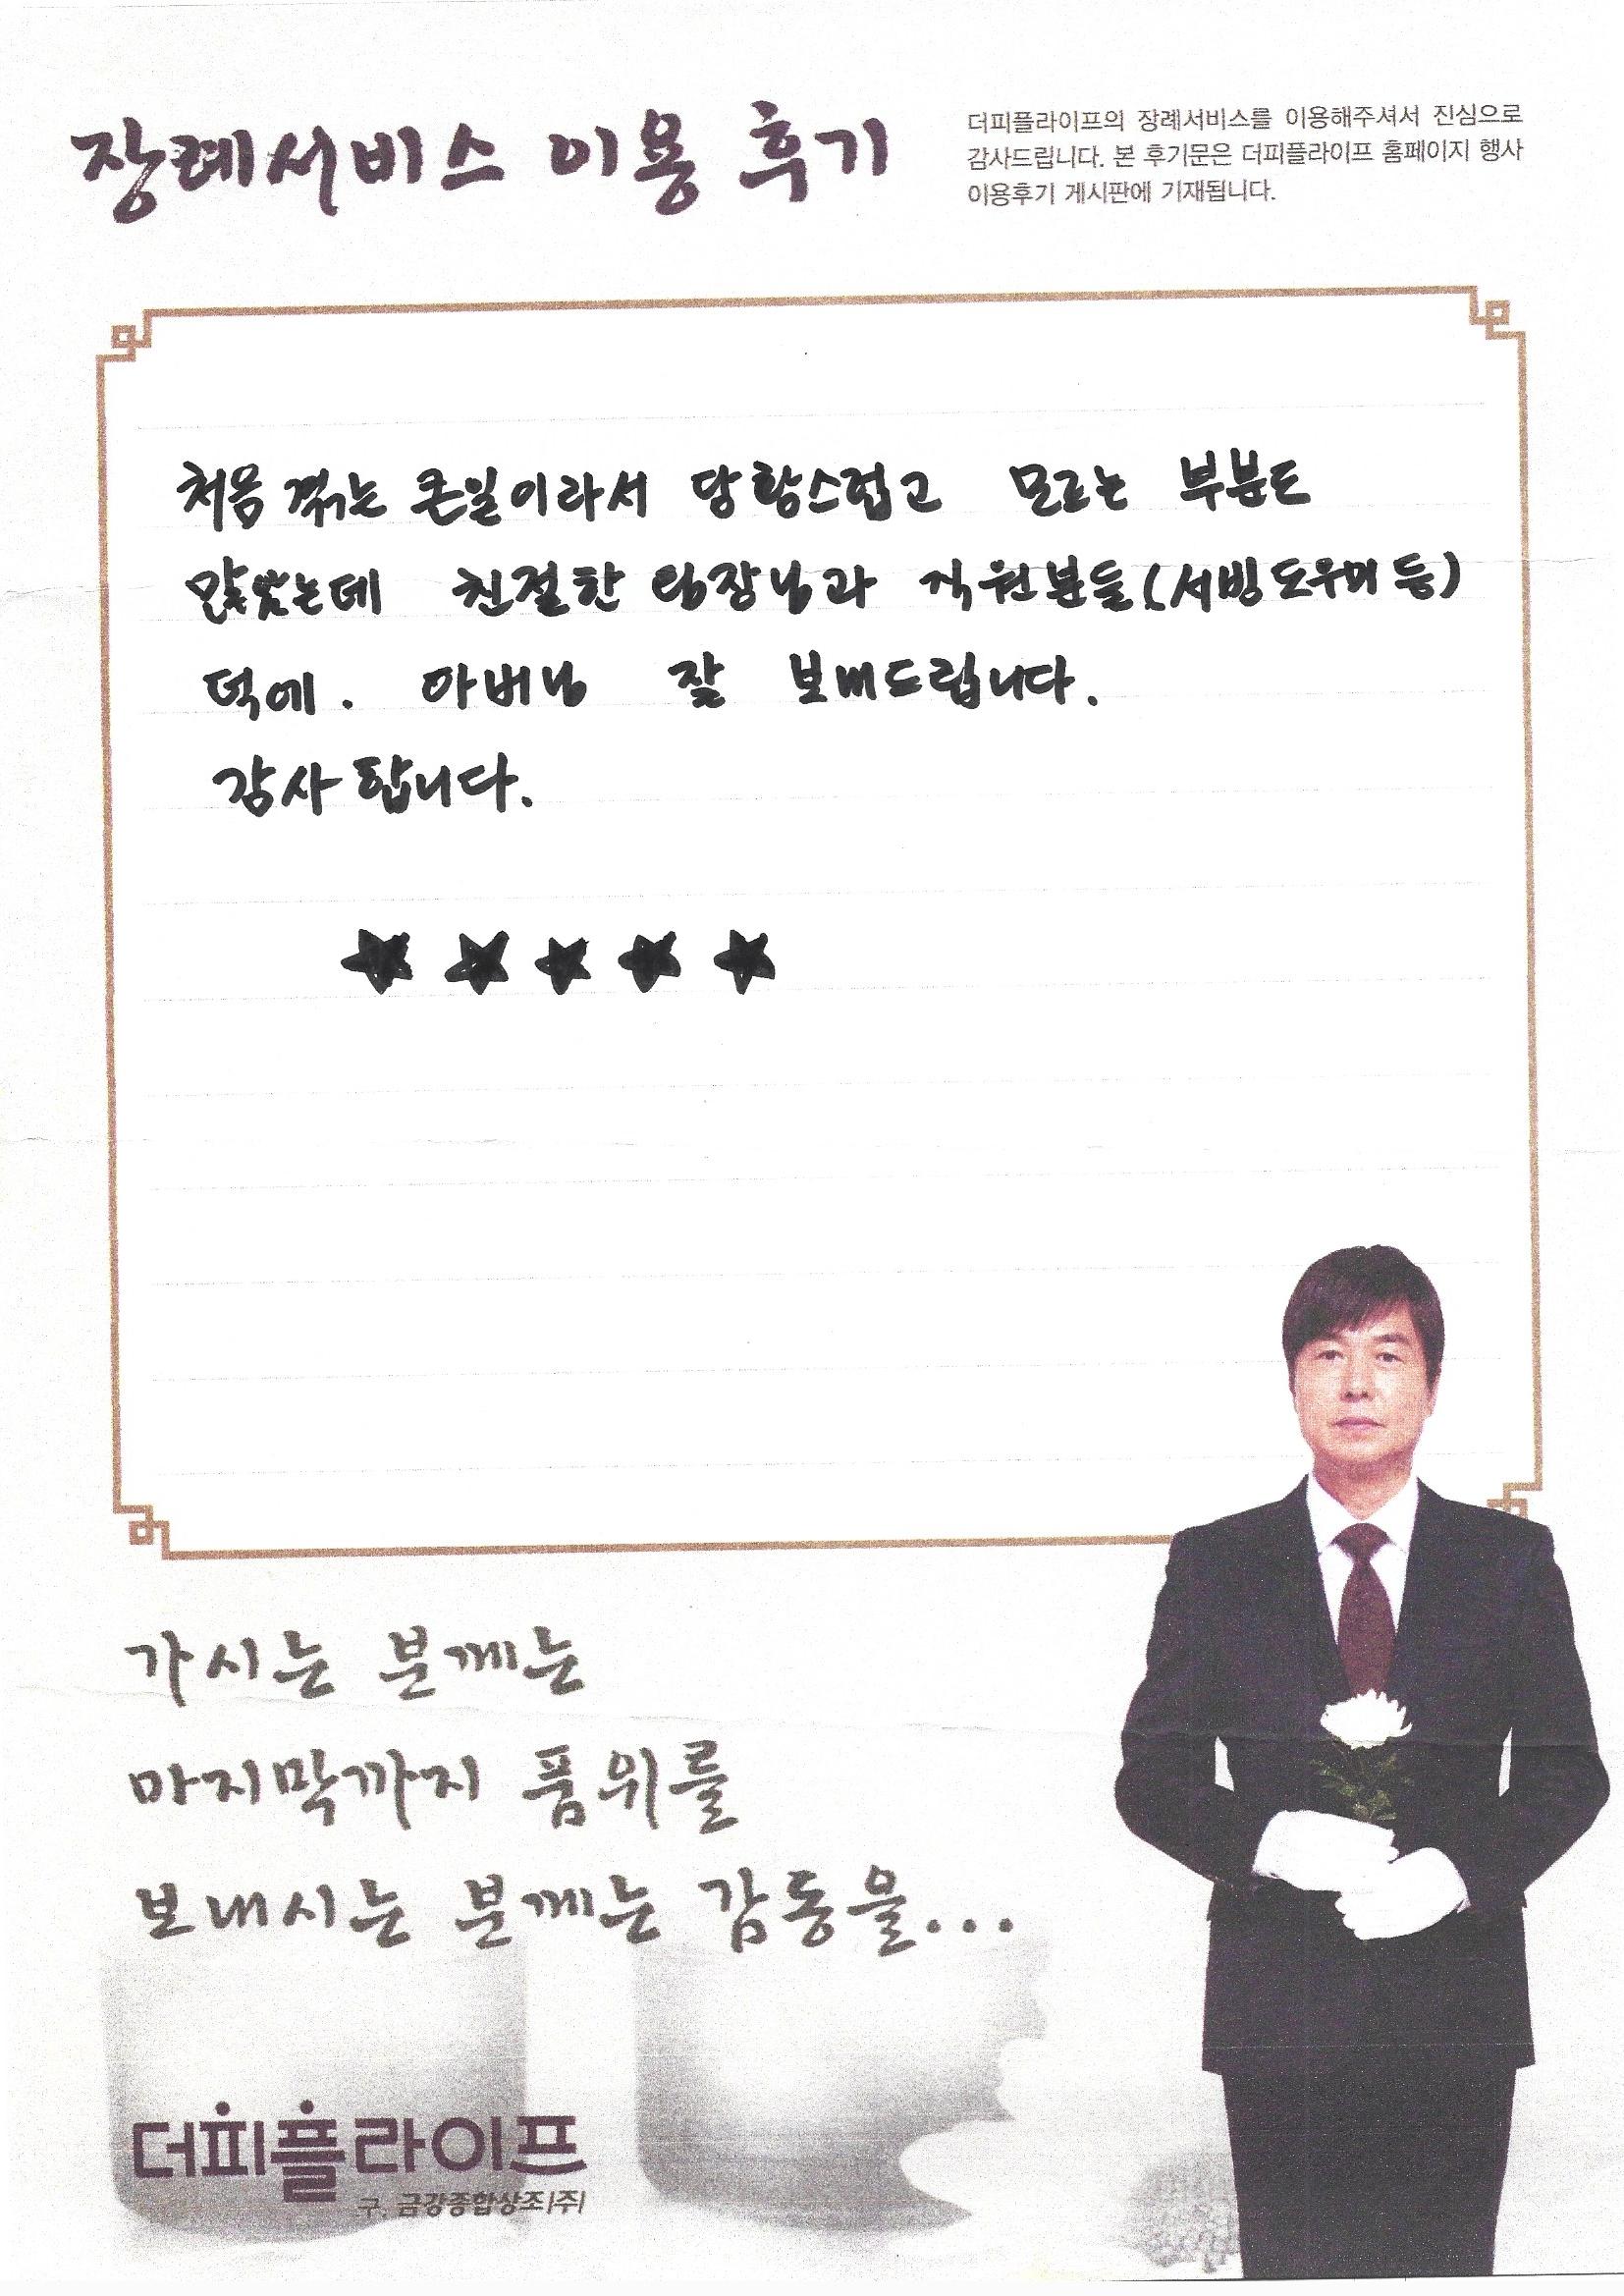 장례서비스 이용 후기
더피플라이프의 장례서비스를 이용해주셔서 진심으로
감사드립니다. 본 후기문은 더피플라이프 홈페이지 행사
이용후기 게시판에 기재됩니다.
처음 겪는 큰일이라서 당황스럽고 모르는 부분도
많았는데 친절한 팀장님과 직원분들(서빙도우미 등)
덕에. 아버님 잘 보내드립니다.
감사합니다.
★★★★★
가시는 분께는
마지막까지 품위를
보내시는 분께는 감동을...
더피플라이프
구. 금강종합상조(주)